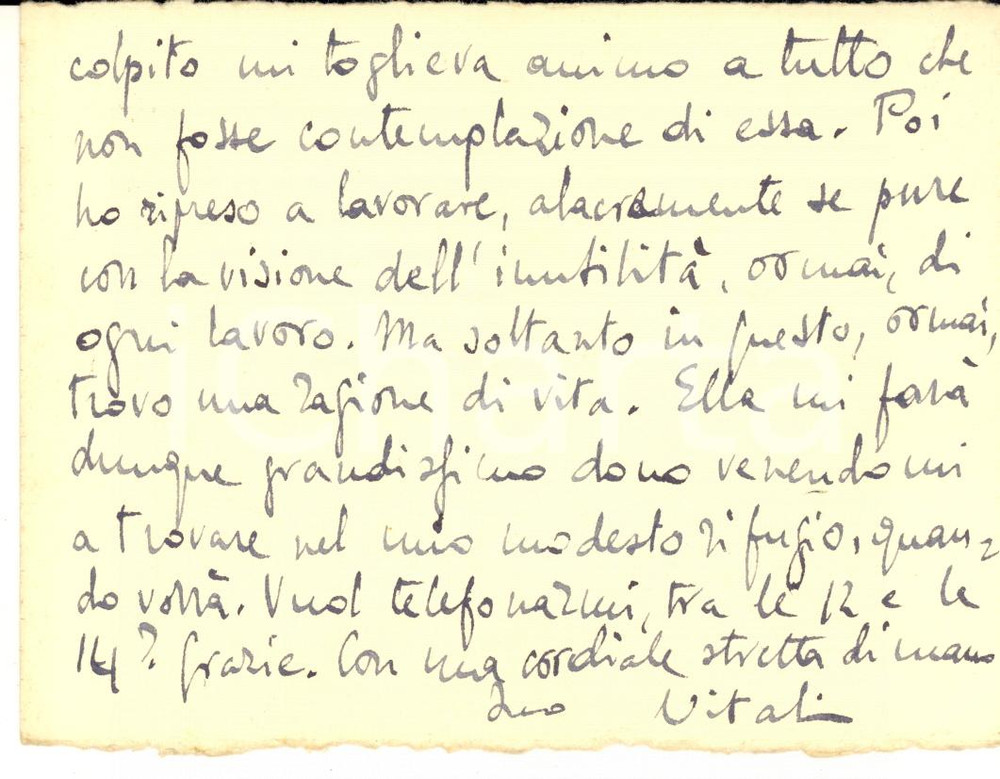 colpito mi toglieva animo a tutto che
non fosse contemplazione di essa. Poi
ho ripreso a lavorare, alacremente se pure
con la visione dell'inutilità, ormai, di
ogni lavoro. Ma soltanto in questo, ormai,
trovo una ragione di vita. Ella mi farà
dunque grandissimo dono venendomi
a trovare nel mio modesto rifugio, quan-
do vorrà. Vuol telefonarmi, tra le 12 e le
14? Grazie. Con una cordiale stretta di mano
Suo Vitali
iCharta